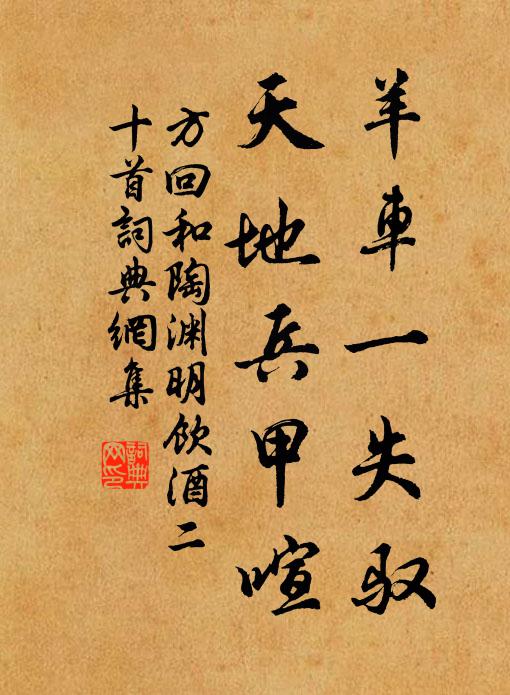 羊車一失馭
天地兵甲喧
方回和陶渊明飲酒二
十首詞典網集
詞典
网印